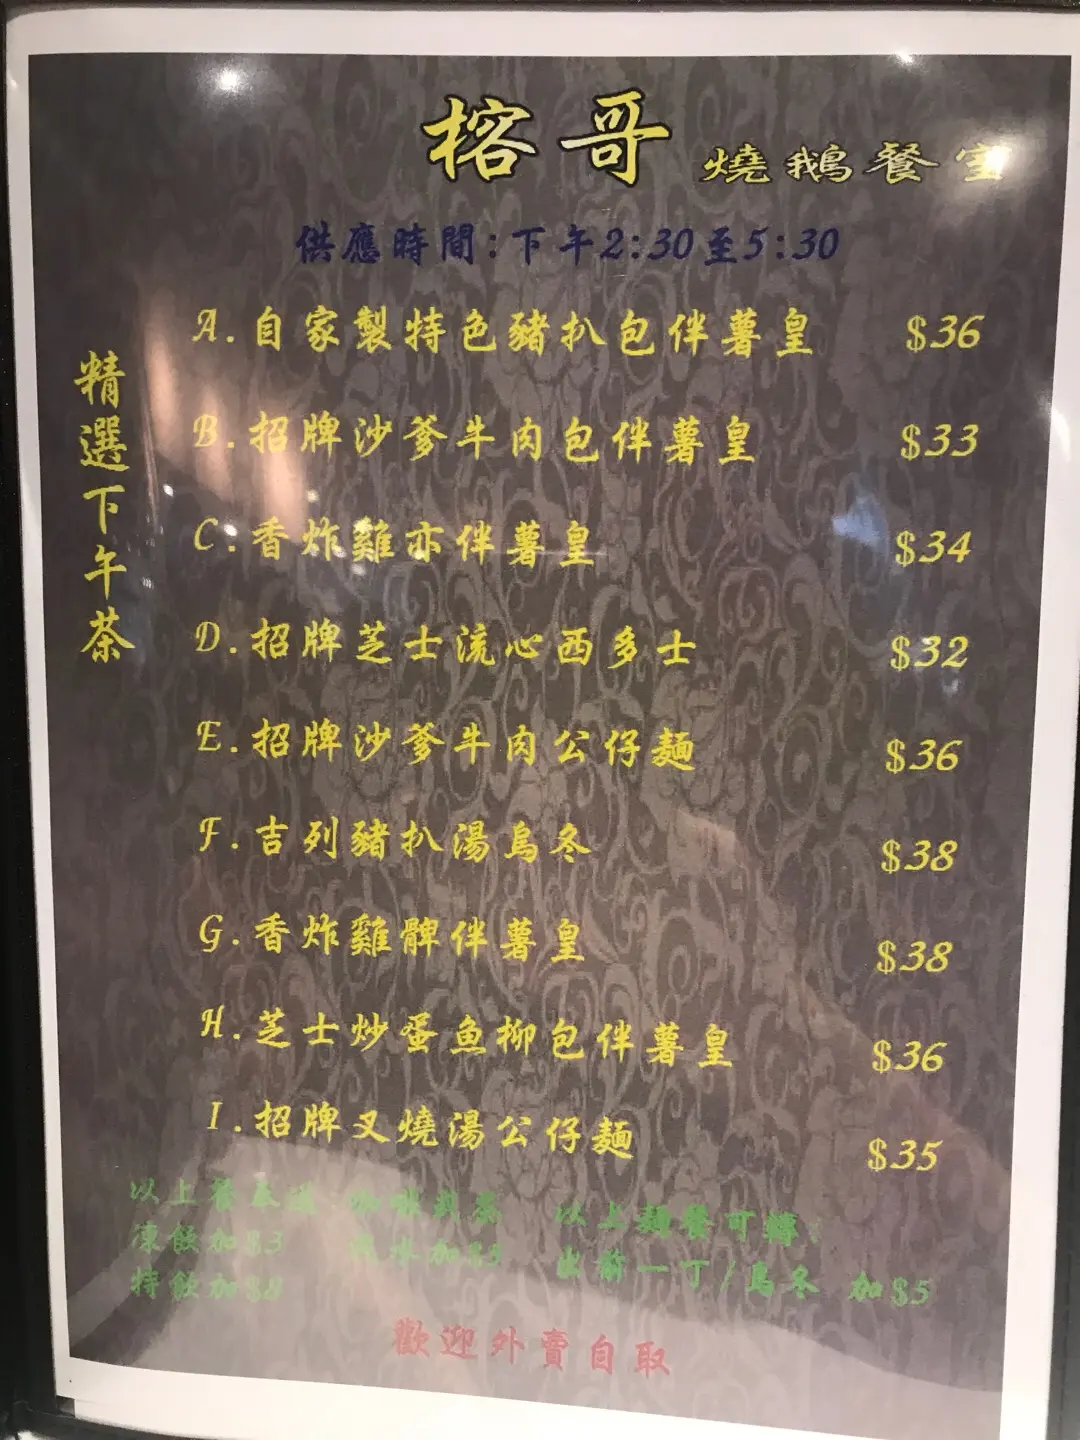 榕哥 燒鵝餐室
供應時間:下午2:30至5:30
精選下午茶
A.自家製特色豬扒包伴薯皇 $36
B.招牌沙爹牛肉包伴薯皇 $33
C.香炸雞亦伴薯皇 $34
D.招牌芝士流心西多士 $32
E.招牌沙爹牛肉公仔麵 $36
F.吉列豬扒湯烏冬 $38
G.香炸雞髀伴薯皇 $38
H.芝士炒蛋魚柳包伴薯皇 $36
I.招牌叉燒湯公仔麵 $35
以上餐奉送 咖啡或茶 以上麵餐可轉
凍飲加$3 加$3 出前一丁/烏冬 加$5
特飲加$8
歡迎外賣自取